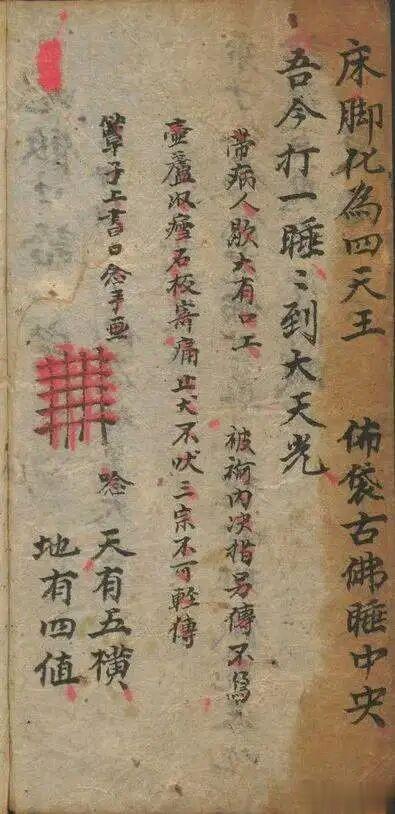 床脚化為四天王 佈袋古佛睡中央
吾今打一睡〻到大天光
帶病人歇大有口工 被裯内決指另傳不爲
壺盧收瘧石板嵜痛止犬不吠三宗不可輕傳
簟子上書口念手画 唸
天有五橫
地有四值